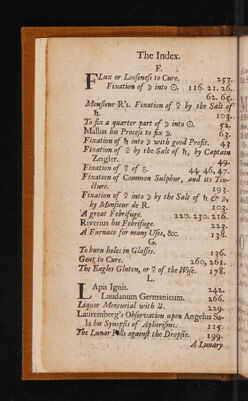 The Index.
F.
FLux or Looseness to Cure. 257.
Fixation of ☽ into ☉. 116. 21. 26.
62. 65.
Monsieur R's. Fixation of ☿ by the Salt of
♄. 103.
To fix a quarter part of ☽ into ☉. 52.
Mallus his Process to fix ☽. 63.
Fixation of ♄ into ☽ with good Profit. 43
Fixation of ☿ by the Salt of ♄, by Captain
Zeigler. 49.
Fixation of ☿ of ♁. 44. 46, 47.
Fixation of Common Sulphur, and its Tin-
cture. 193.
Fixation of ☿ into ☽ by the Salt of ♄ & ☽,
by Monsieur de R. 103.
A great Febrifuge. 220. 230. 216.
Riverius his Febrifuge. 223.
A Furnace for many Uses, &c. 138.
G.
To burn holes in Glasses. 136.
Gout to Cure. 260, 261.
The Eagles Gluten, or ☿ of the Wise. 178.
L.
LApis Ignis. 242.
Laudanum Germanicum. 266.
Liquor Mercurial with ♃. 229.
Lauremberg's Observation upon Angelus Sa-
la his Synopsis of Aphorisms. 115.
The Lunar Pills against the Dropsie. 199.
A Lunary